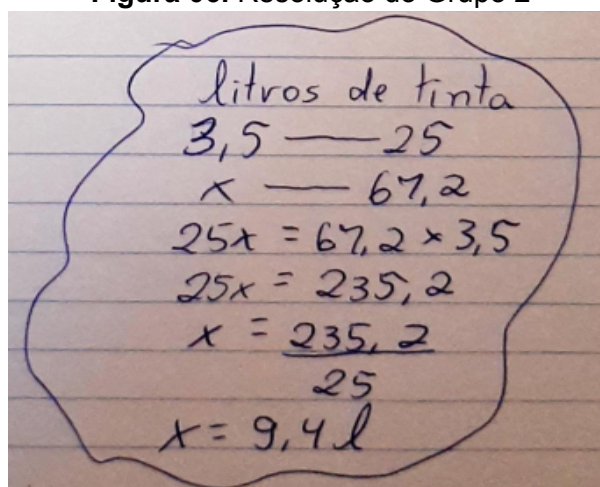 litros de tinta
3,5 — 25
x — 67,2
25x = 67,2 × 3,5
25x = 235,2
x = 235,2
25
x = 9,4 l